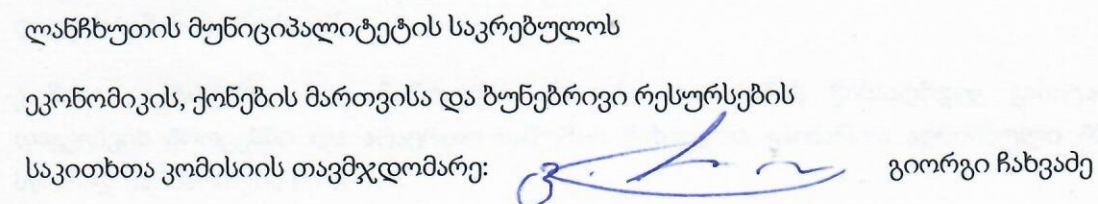 ლანჩხუთის მუნიციპალიტეტის საკრებულოს
ეკონომიკის, ქონების მართვისა და ბუნებრივი რესურსების
საკითხთა კომისიის თავმჯდომარე: გიორგი ჩახვაძე